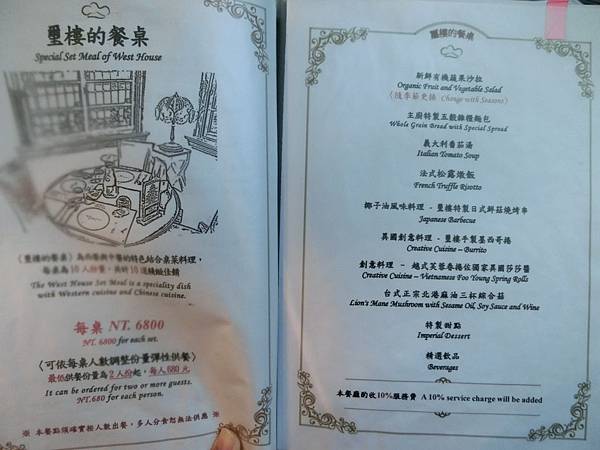 璽樓的餐桌
Special Set Meal of West House
《璽樓的餐桌》為西餐與中餐的特色結合桌菜料理，
每桌為10人份量，共計10道精緻佳餚
The West House Set Meal is a speciality dish
with Western cuisine and Chinese cuisine.
每桌 NT. 6800
NT. 6800 for each set.
〈可依每桌人數調整份量彈性供餐〉
最低供餐份量為2人份起，每人680元
It can be ordered for two or more guests.
NT.680 for each person.
※ 本餐點須確實按人數出餐，多人分食恕無法供應 ※
璽樓的餐桌
新鮮有機蔬果沙拉
Organic Fruit and Vegetable Salad
〈隨季節更換 Change with Seasons〉
主廚特製五穀雜糧麵包
Whole Grain Bread with Special Spread
義大利番茄湯
Italian Tomato Soup
法式松露燉飯
French Truffle Risotto
椰子油風味料理 - 璽樓特製日式鮮菇燒烤串
Japanese Barbecue
異國創意料理 - 璽樓手製墨西哥捲
Creative Cuisine – Burrito
創意料理 - 越式芙蓉春捲佐獨家異國莎莎醬
Creative Cuisine – Vietnamese Foo Young Spring Rolls
台式正宗北港麻油三杯綜合菇
Lion's Mane Mushroom with Sesame Oil, Soy Sauce and Wine
特製甜點
Imperial Dessert
精選飲品
Beverages
本餐廳酌收10%服務費 A 10% service charge will be added